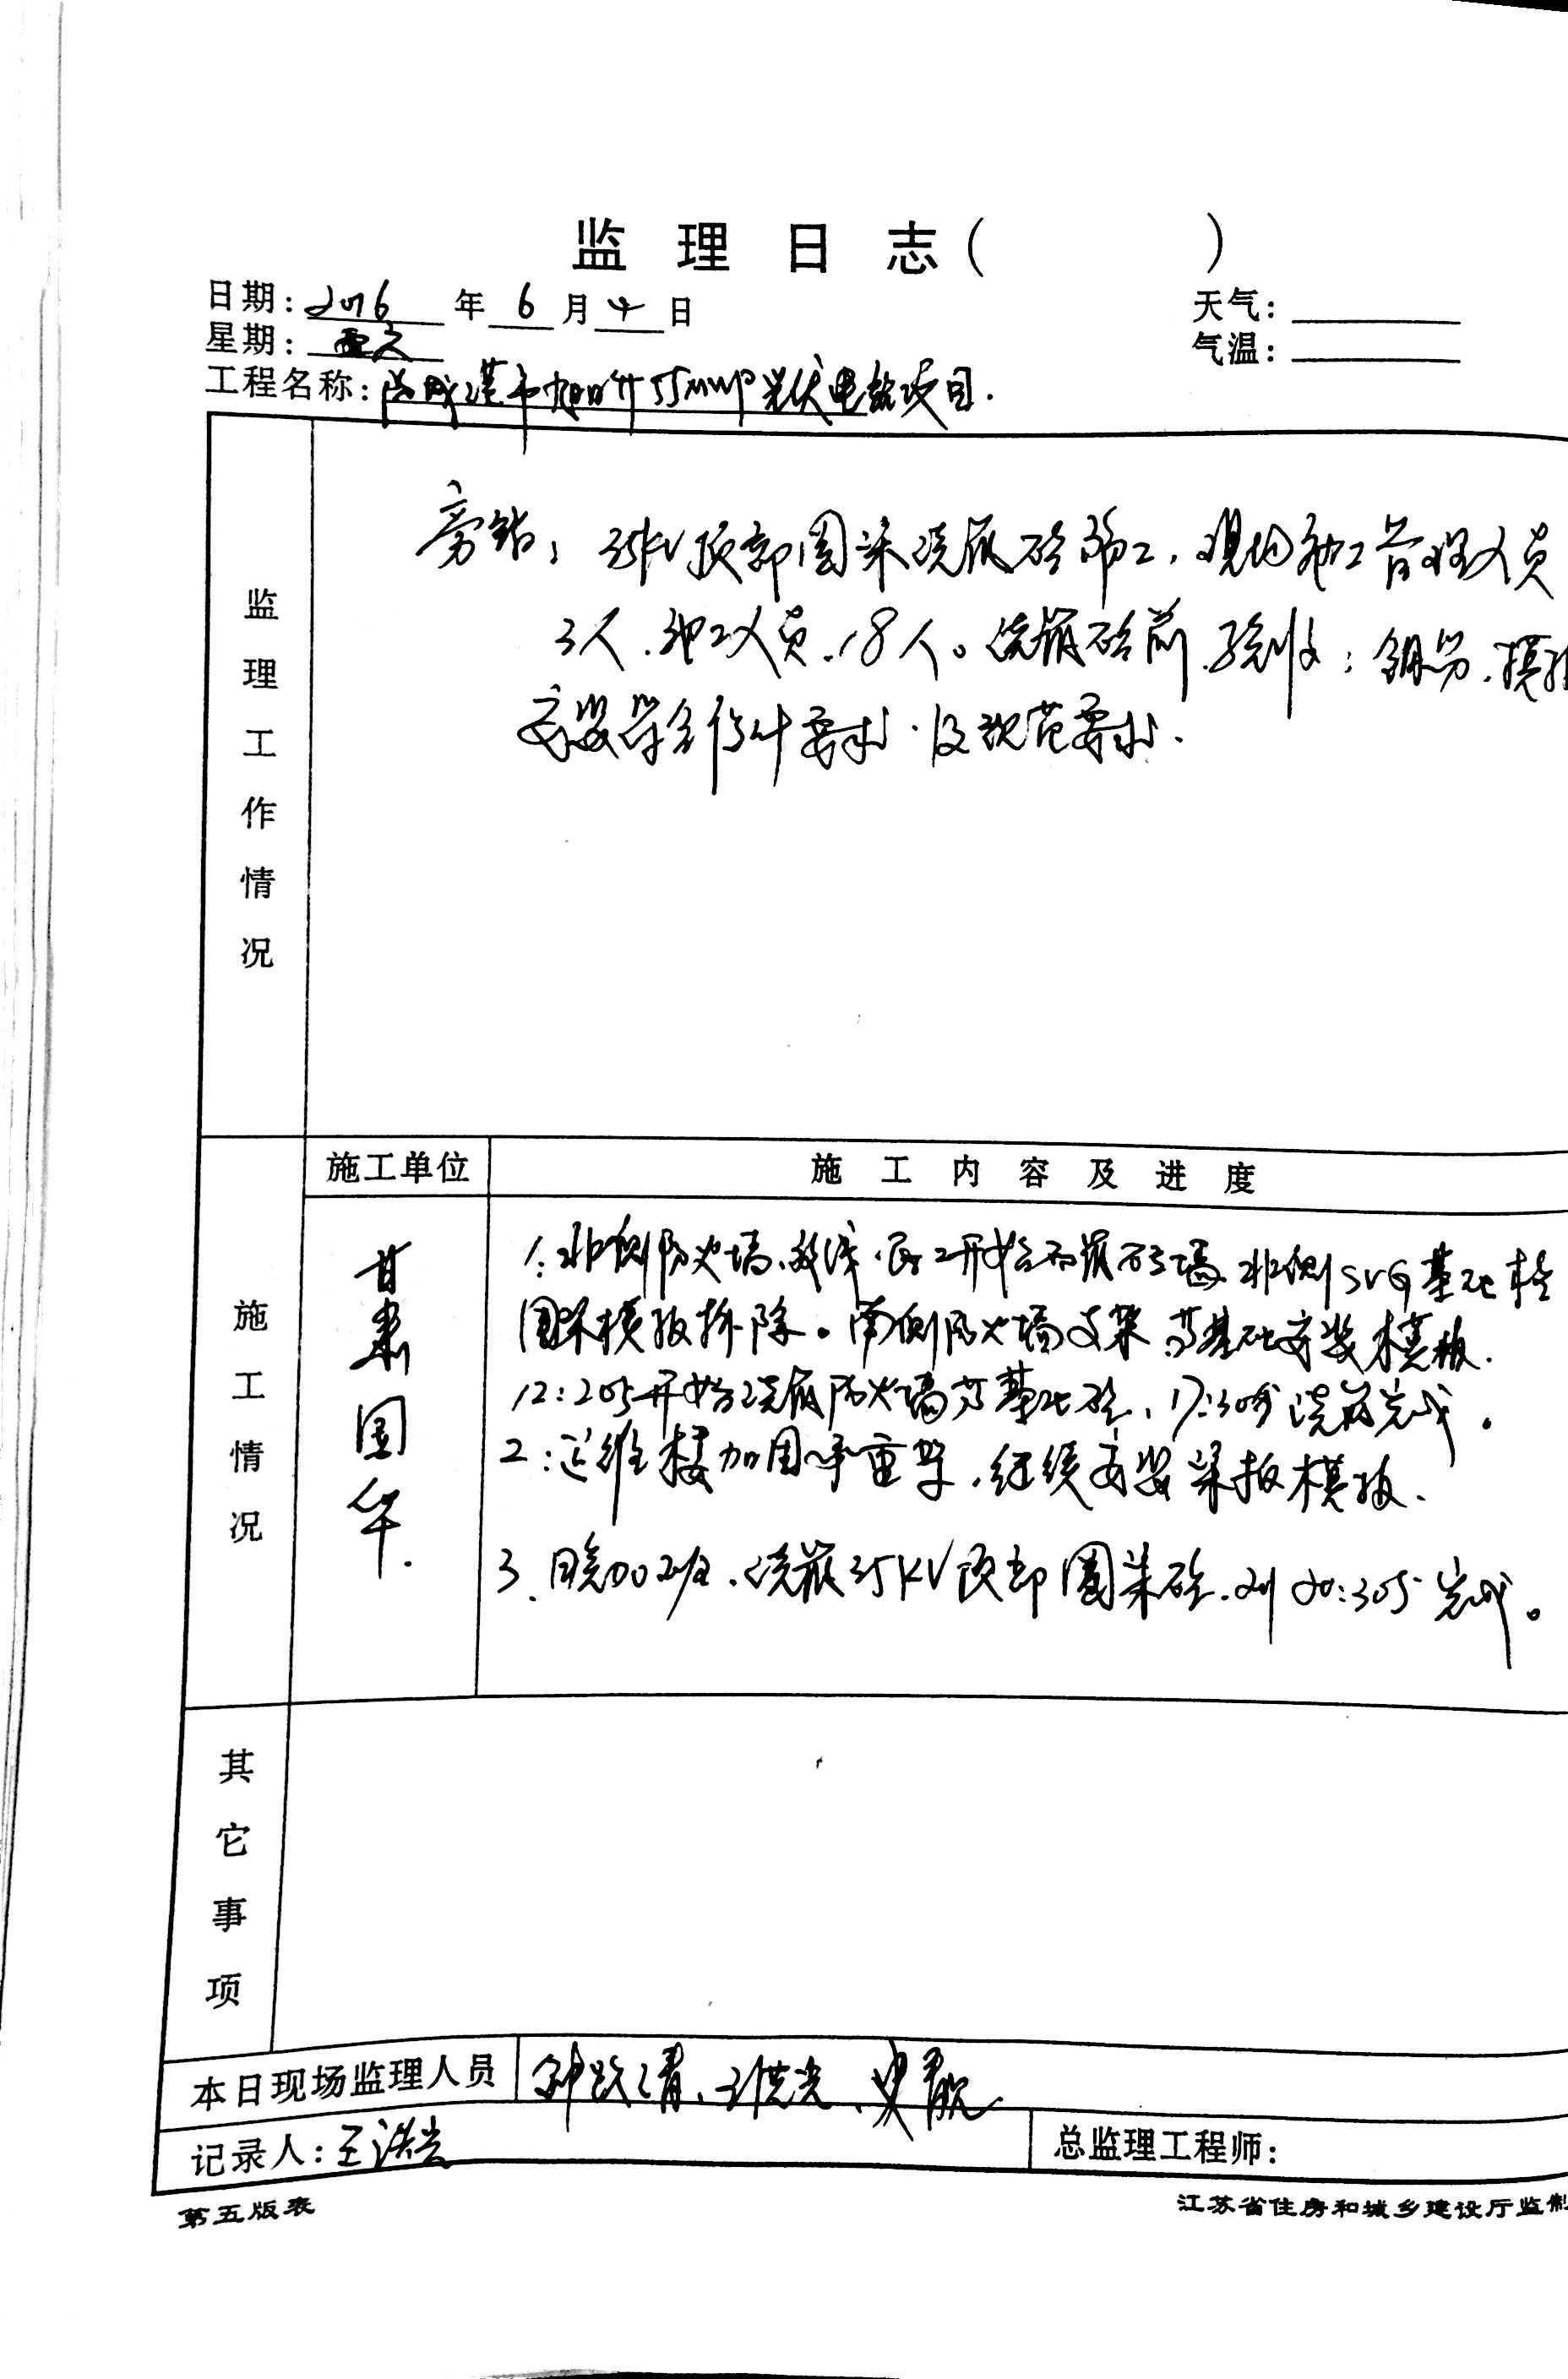 监理日志(    )
日期:2016年6月4日
天气:
星期:
气温:
工程名称:市旭升35MWP光伏电站项目.
监理工作情况
旁站:35KV顶部圈梁浇筑砼施工,现场施工管理人员
3人.施工人员.18人。浇筑砼前.验收:钢筋.模
安装符合设计要求.及规范要求.
施工单位
施工内容及进度
施工情况
甘肃国华.
1:北侧防火墙.放线.民工开始砌筑砖墙.北侧SVG基础栓
圈梁模板拆除。南侧防火墙支架基础安装模板.
12:20开始浇筑防火墙基础砼,17:30浇筑完成。
2:运维楼加固承重架.继续安装梁板模板.
3.晚加班.浇筑35KV顶部圈梁砼.到20:30完成。
其它事项
本日现场监理人员
记录人:王洪光
总监理工程师:
第五版表
江苏省住房和城乡建设厅监制